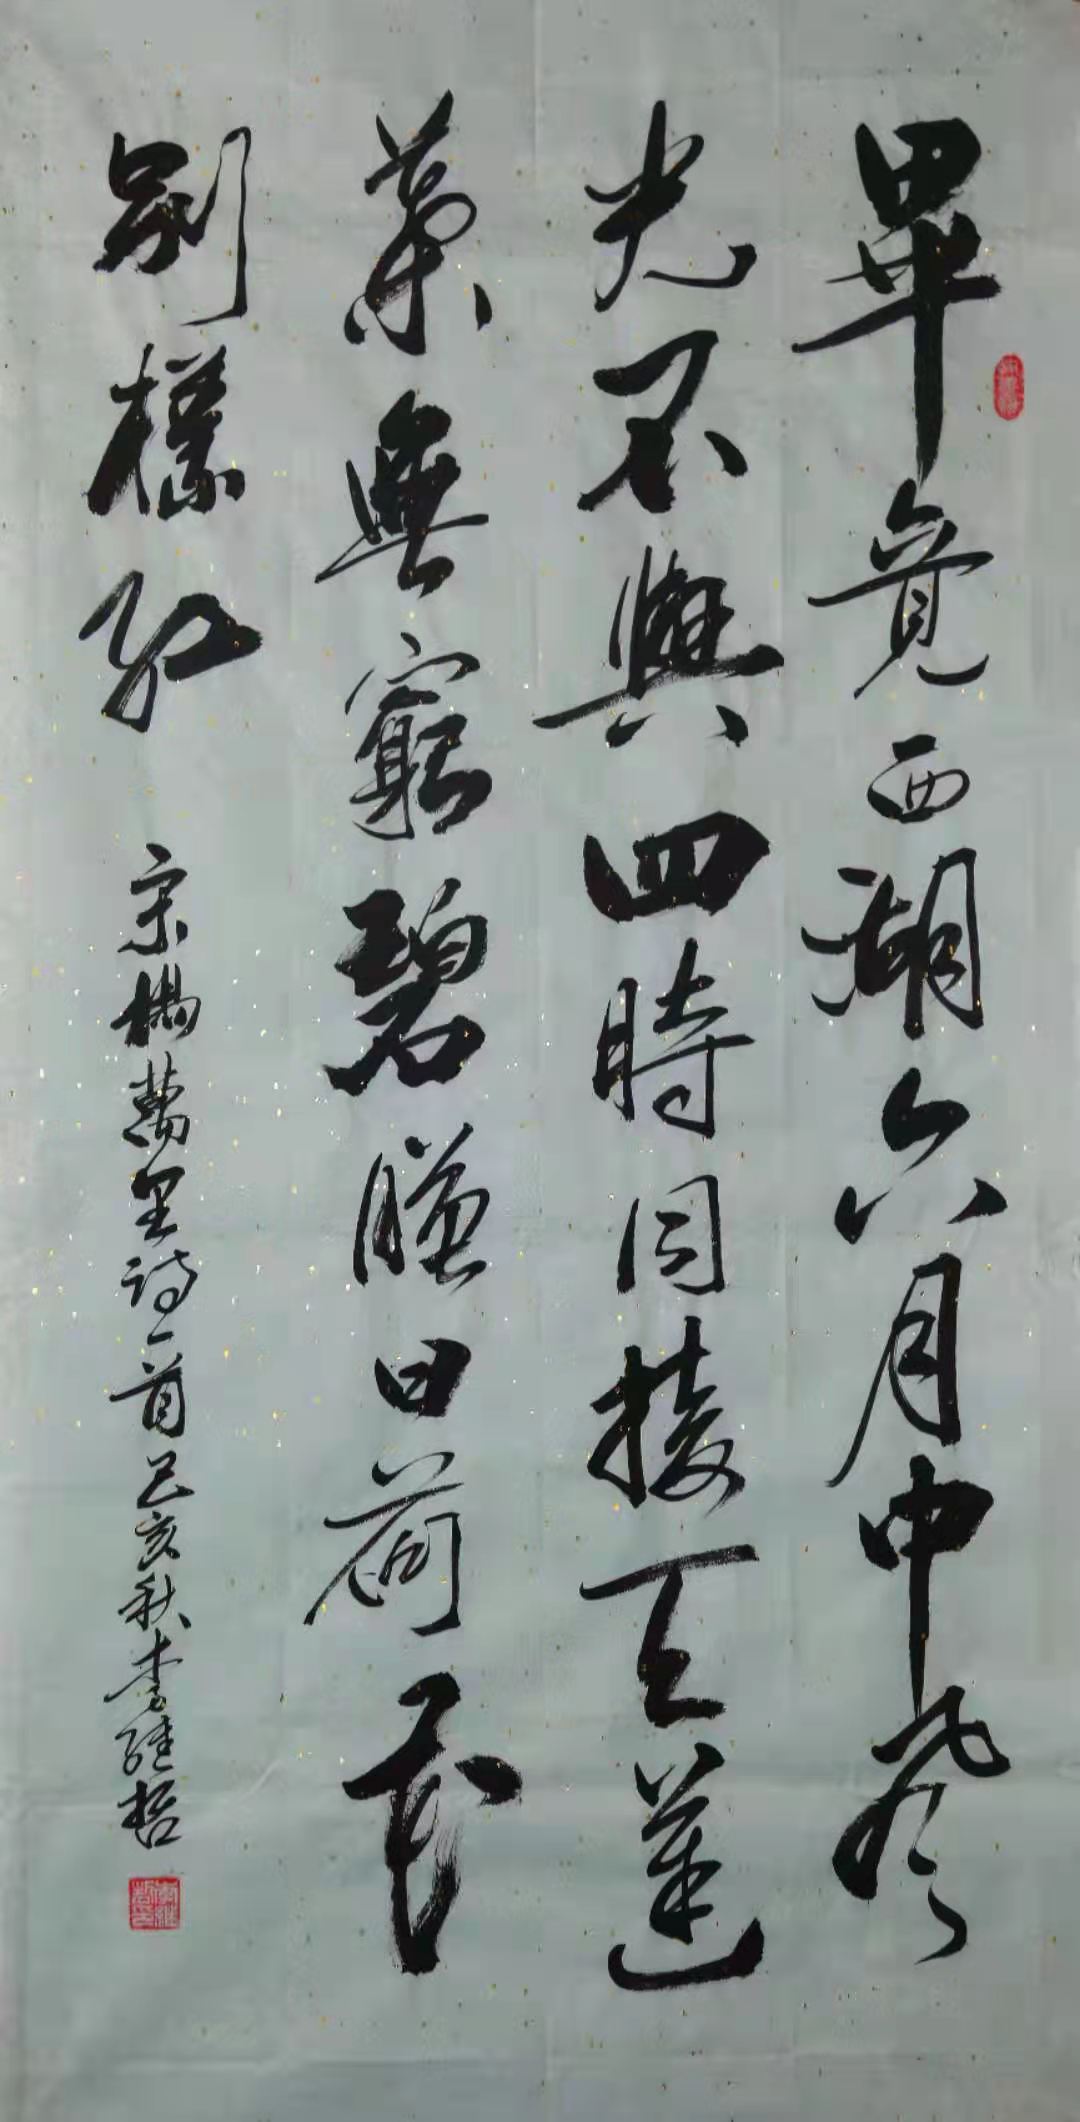 畢竟西湖六月中風
光不與四時同接天蓮
葉無窮碧映日荷花
別樣紅
宋楊萬里詩一首己亥秋李維哲